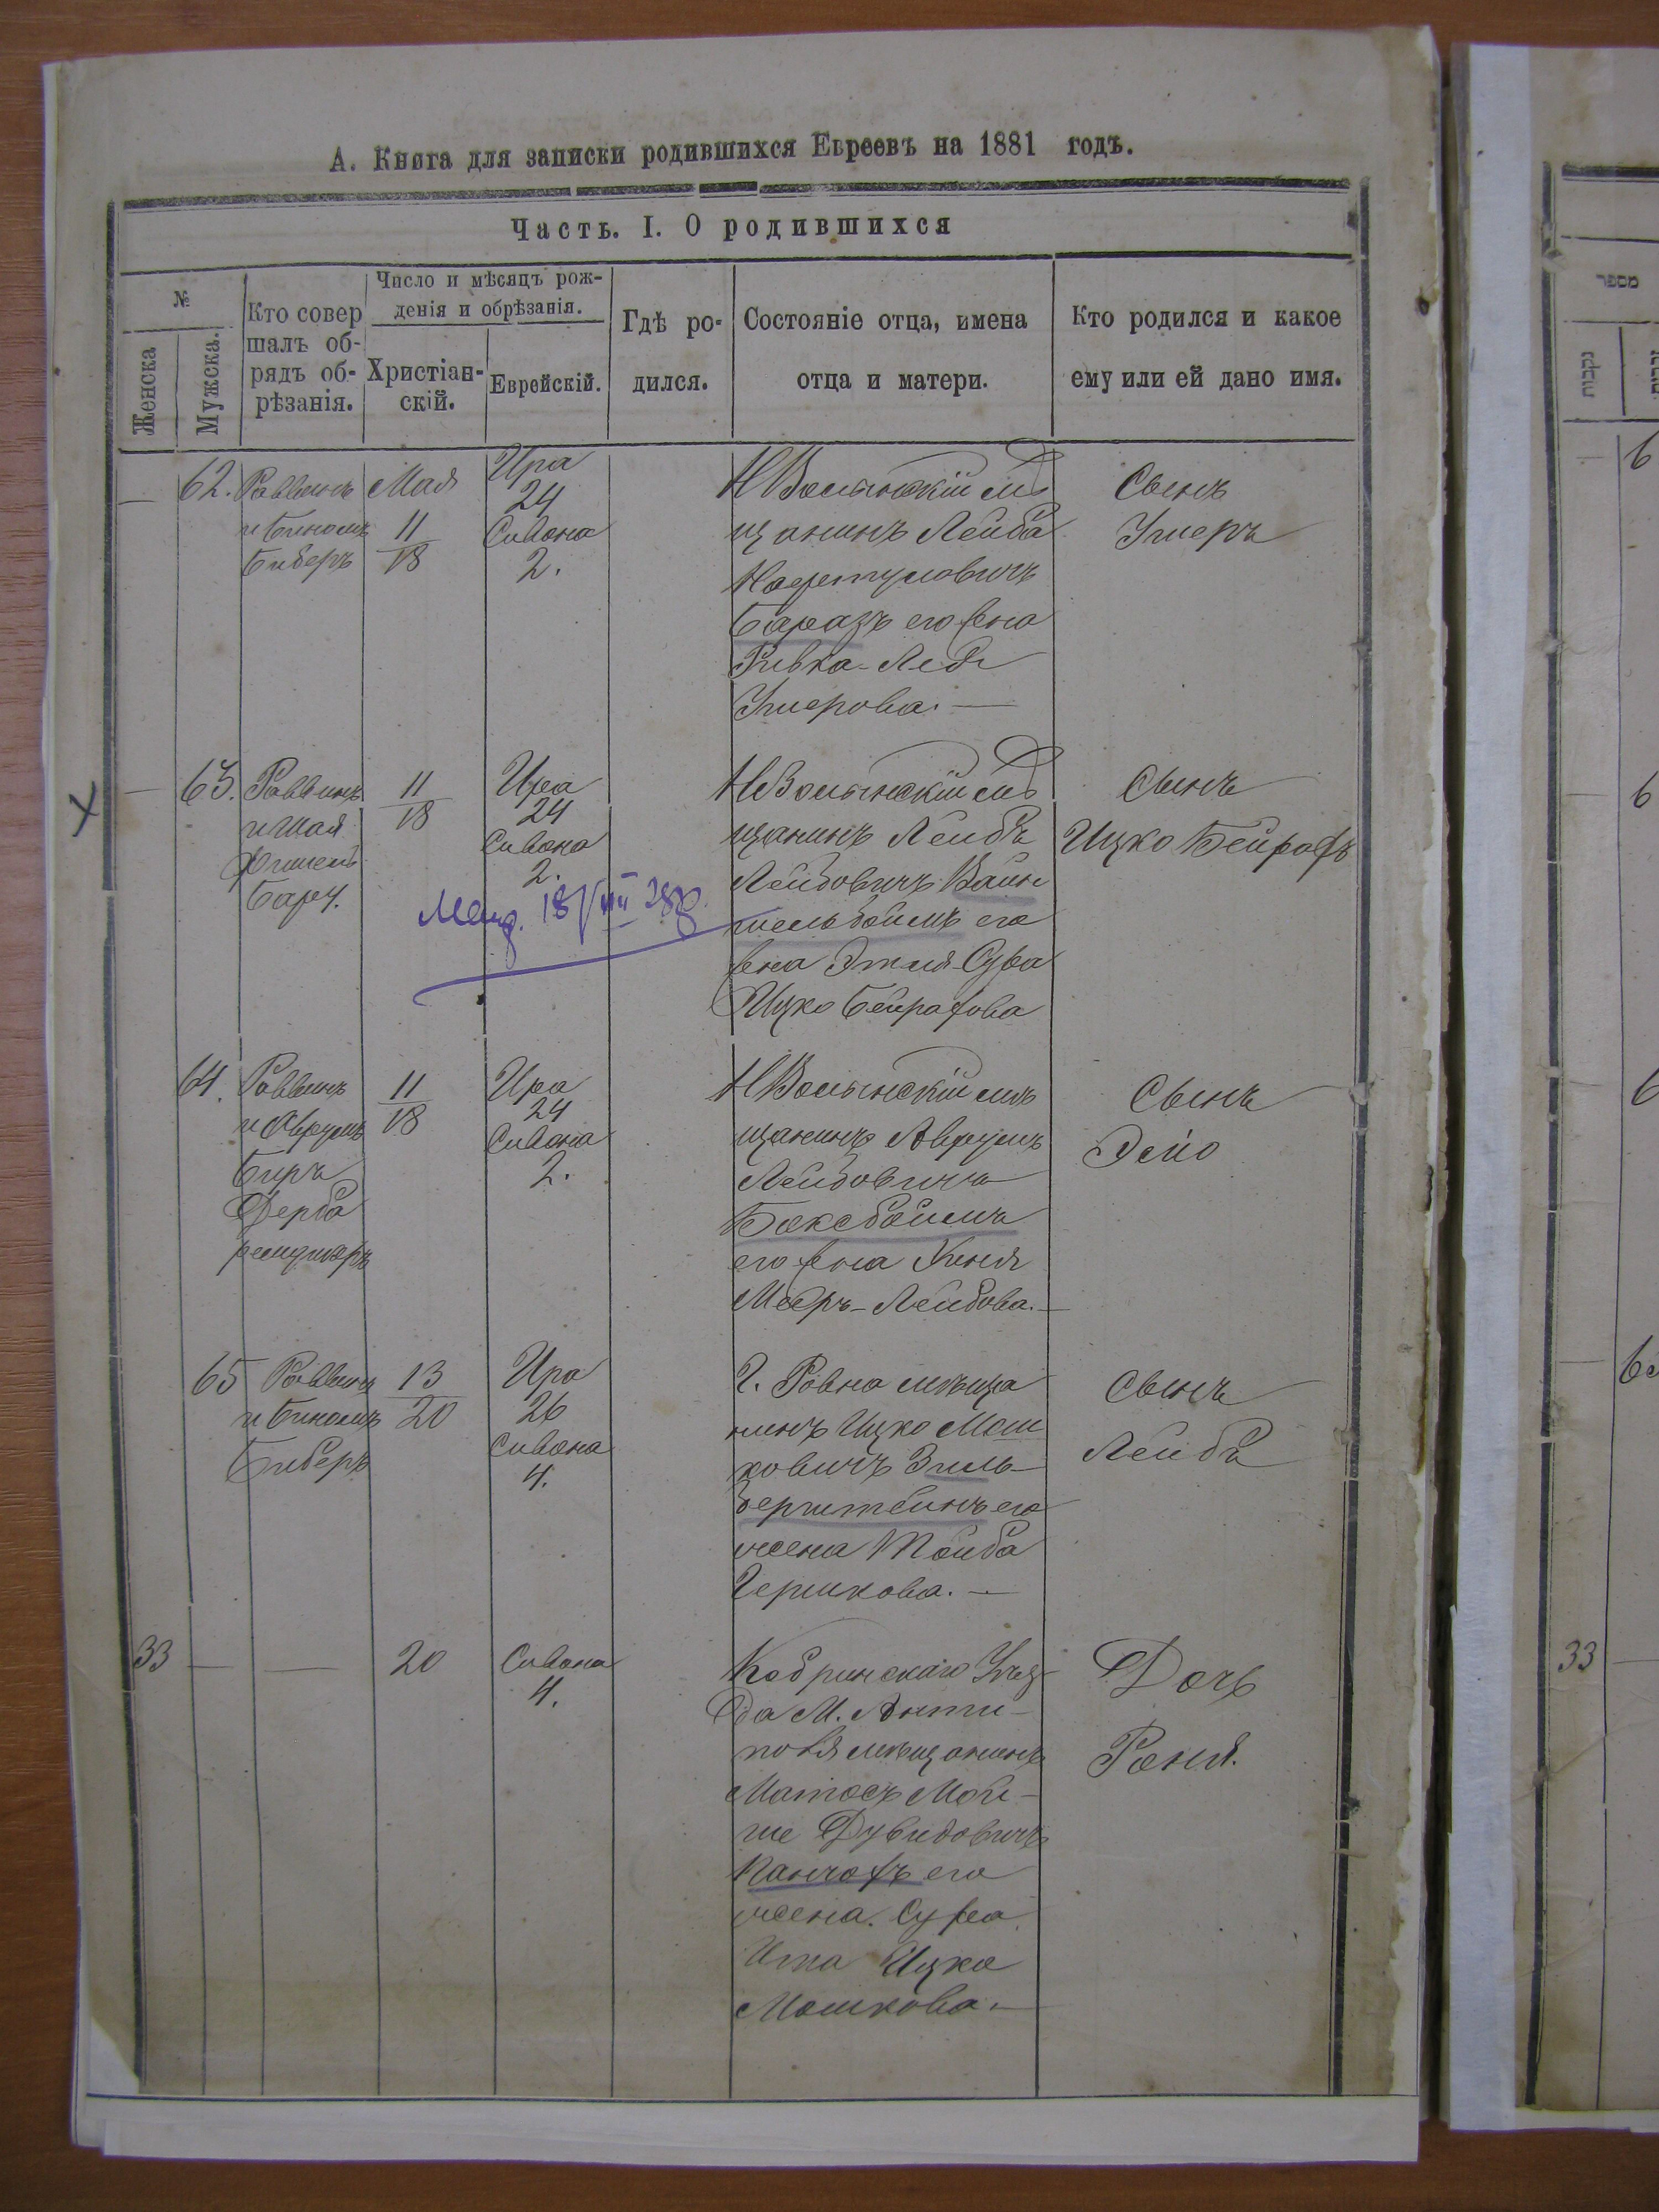 А. Книга для записки родившихся Евреевъ на 1881 годъ.
Часть. I. О родившихся
№
Женска
Мужска.
Кто совер
шалъ об-
рядъ об-
рѣзанія.
Число и мѣсяцъ рож-
денія и обрѣзанія.
Христіан-
скій.
Еврейскій.
Гдѣ ро-
дился.
Состояніе отца, имена
отца и матери.
Кто родился и какое
ему или ей дано имя.
62.
Раввинъ
и Биномъ
Биберъ
Мая
11
18
Ира
24
Сивона
2.
НВолынскій мѣ
щанинъ Лейба
Нафтуловичъ
его жена
Ривка-Лея
Умерова. —
Сынъ
Умеръ
63.
Раввинъ
и Шая
Фишель
Барч.
11
18
Ира
24
Сивона
2.
НВолынскій мѣ
щанинъ Лейбъ
Лейбовичъ Вайн
тельбоймъ его
жена Этля-Сура
Ицко Бейрафова
Сынъ
Ицко Бейрафъ
64.
Раввинъ
и Аврумъ
Беръ
Дерба
11
18
Ира
24
Сивона
2.
НВолынскій мѣ
щанинъ Аврумъ
Лейбовичъ
Боксбоймъ
его жена Хеня
Меръ-Лейбова. —
Сынъ
65
Раввинъ
и Биномъ
Биберъ
13
20
Ира
26
Сивона
4.
Г. Ровна мѣща
нинъ Ицко Мош
ковичъ Зиль
берштейнъ его
жена Тойба
Гершкова. —
Сынъ
Лейбъ
33
20
Сивона
4.
Кобринскаго Уѣз
да М. Анти-
поля мѣщанинъ
Матосъ Мой-
ше Дувидовичъ
его
жена. Сура
Ита Ицко
Мошкова. —
Дочь
Роня.
מספר
נקבות
6
6
6
33